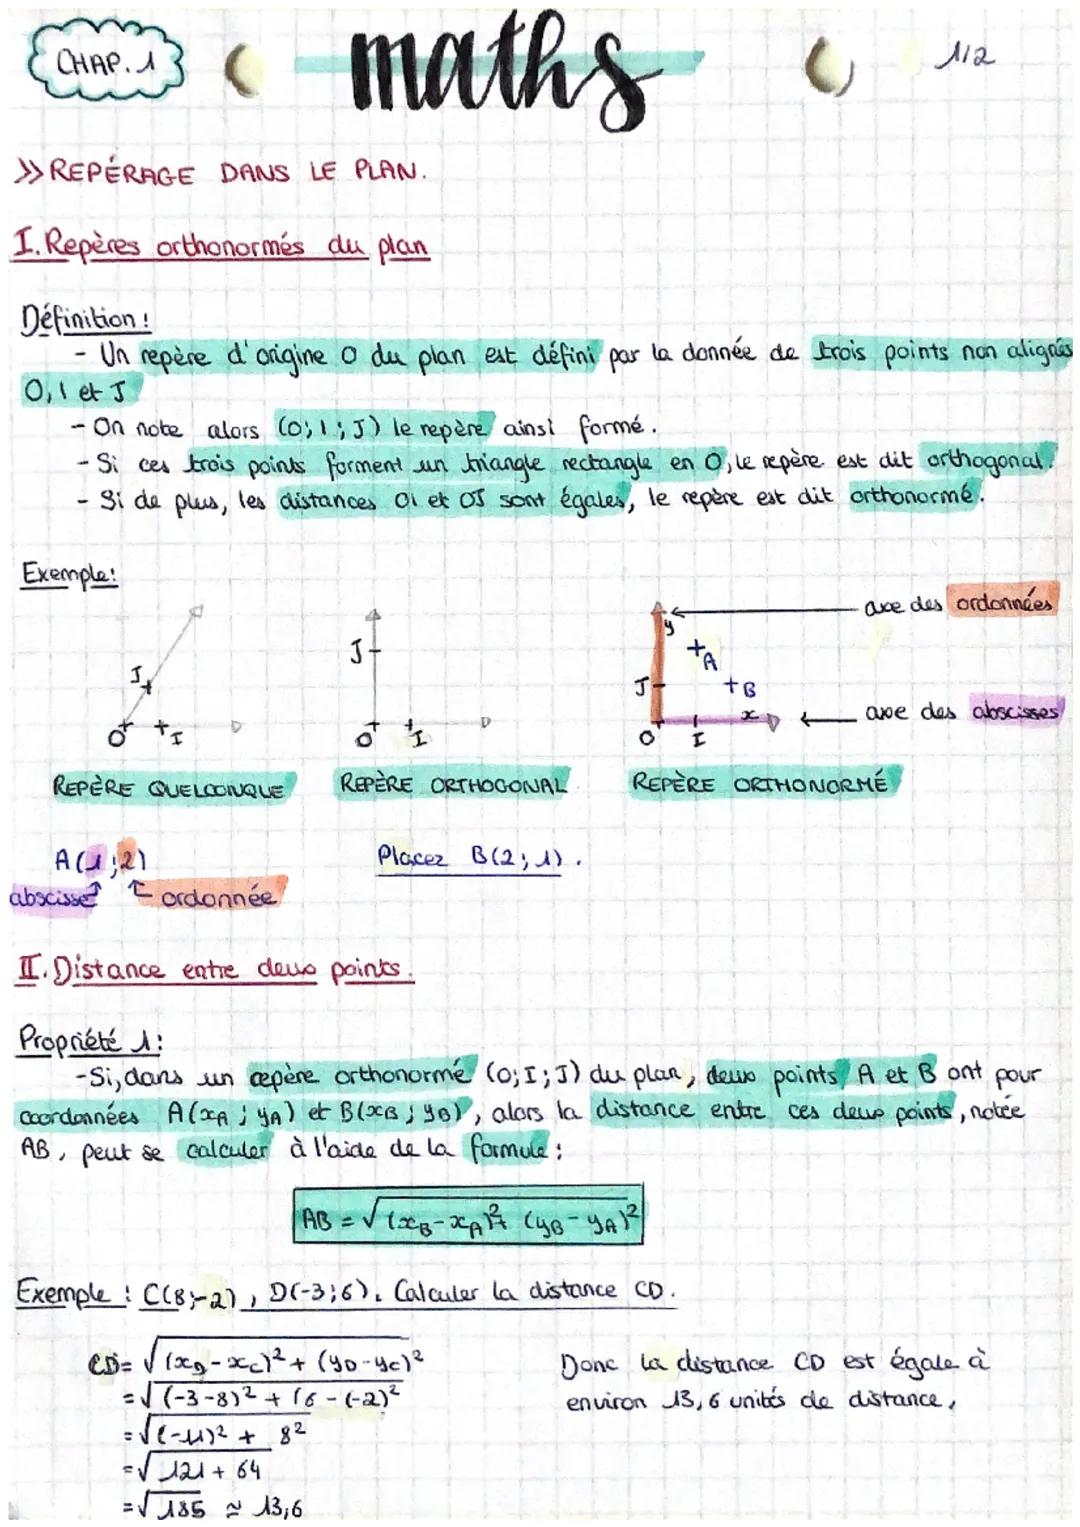 CHAP. 1
maths
1/2
>> REPÉRAGE DANS LE PLAN.
I. Repères orthonormés du plan
Définition :
- Un repère d'origine O du plan est défini par la donnée de trois points non alignés
O, I et J
- On note alors (O; I; J) le repère ainsi formé.
- Si ces trois points forment un triangle rectangle en O, le repère est dit orthogonal.
- Si de plus, les distances OI et OJ sont égales, le repère est dit orthonormé.
Exemple:
axe des ordonnées
axe des abscisses
J
O
I
J
O
I
y
A
B
J
x
O
I
REPÈRE QUELCONQUE
REPÈRE ORTHOGONAL
REPÈRE ORTHONORMÉ
A(1;2)
abscisse
ordonnée
Placez B(2;1).
II. Distance entre deux points.
Propriété 1:
- Si, dans un repère orthonormé (O; I; J) du plan, deux points A et B ont pour
coordonnées A(xA; yA) et B(xB; yB), alors la distance entre ces deux points, notée
AB, peut se calculer à l'aide de la formule :
AB = √(xB-xA)²+ (yB-yA)²
Exemple : C(8;-2), D(-3;6). Calculer la distance CD.
CD= √(xD-xC)²+ (yD-yC)²
=√(-3-8)² + (6-(-2)²
=√(-11)² + 8²
=√121+ 64
=√185 ≃ 13,6
Donc la distance CD est égale à
environ 13,6 unités de distance,